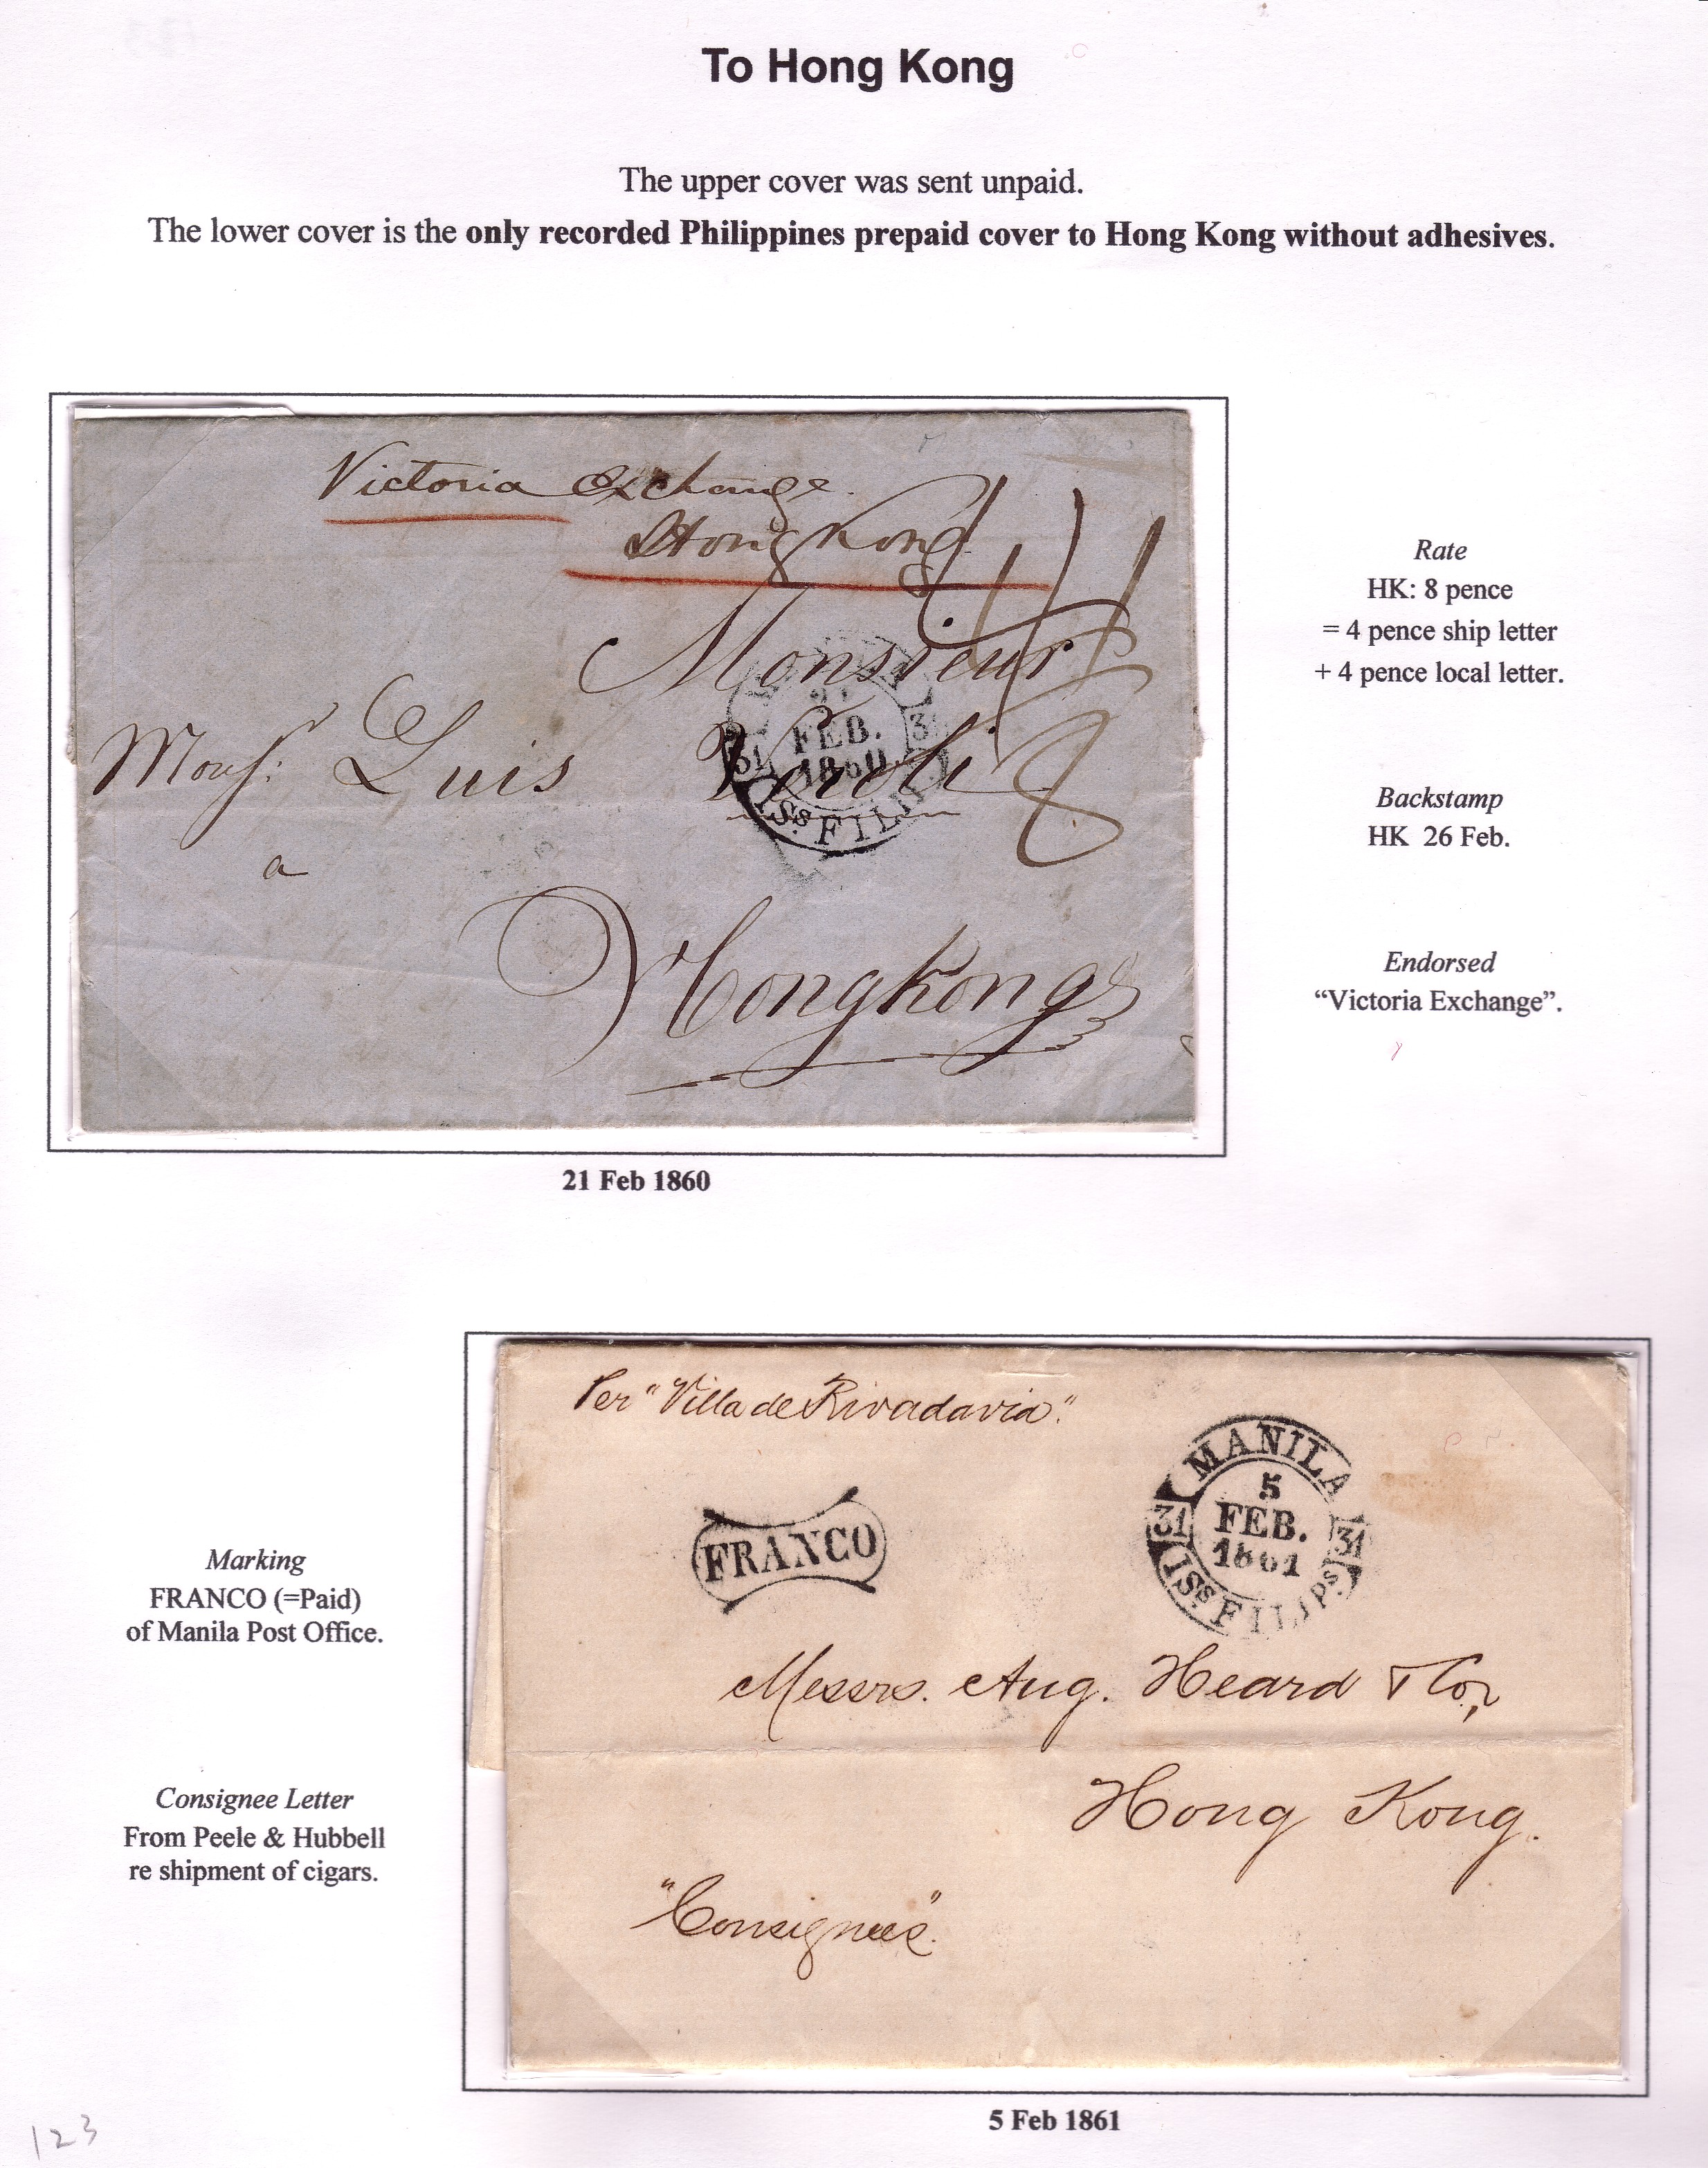 To Hong Kong
The upper cover was sent unpaid.
The lower cover is the only recorded Philippines prepaid cover to Hong Kong without adhesives.
Victoria Exchange
Hong Kong
Monsieur
Monsr. Luis
a
Hongkong
FEB.
1860
31
31
ISs. FILIP
8
Rate
HK: 8 pence
= 4 pence ship letter
+ 4 pence local letter.
Backstamp
HK 26 Feb.
Endorsed
“Victoria Exchange”.
21 Feb 1860
Per "Villa de Rivadavia."
FRANCO
MANILA
5
FEB.
1861
31
31
ISs. FILIPs.
Messrs. Aug. Heard & Co,
Hong Kong.
"Consignees".
Marking
FRANCO (=Paid)
of Manila Post Office.
Consignee Letter
From Peele & Hubbell
re shipment of cigars.
5 Feb 1861
123